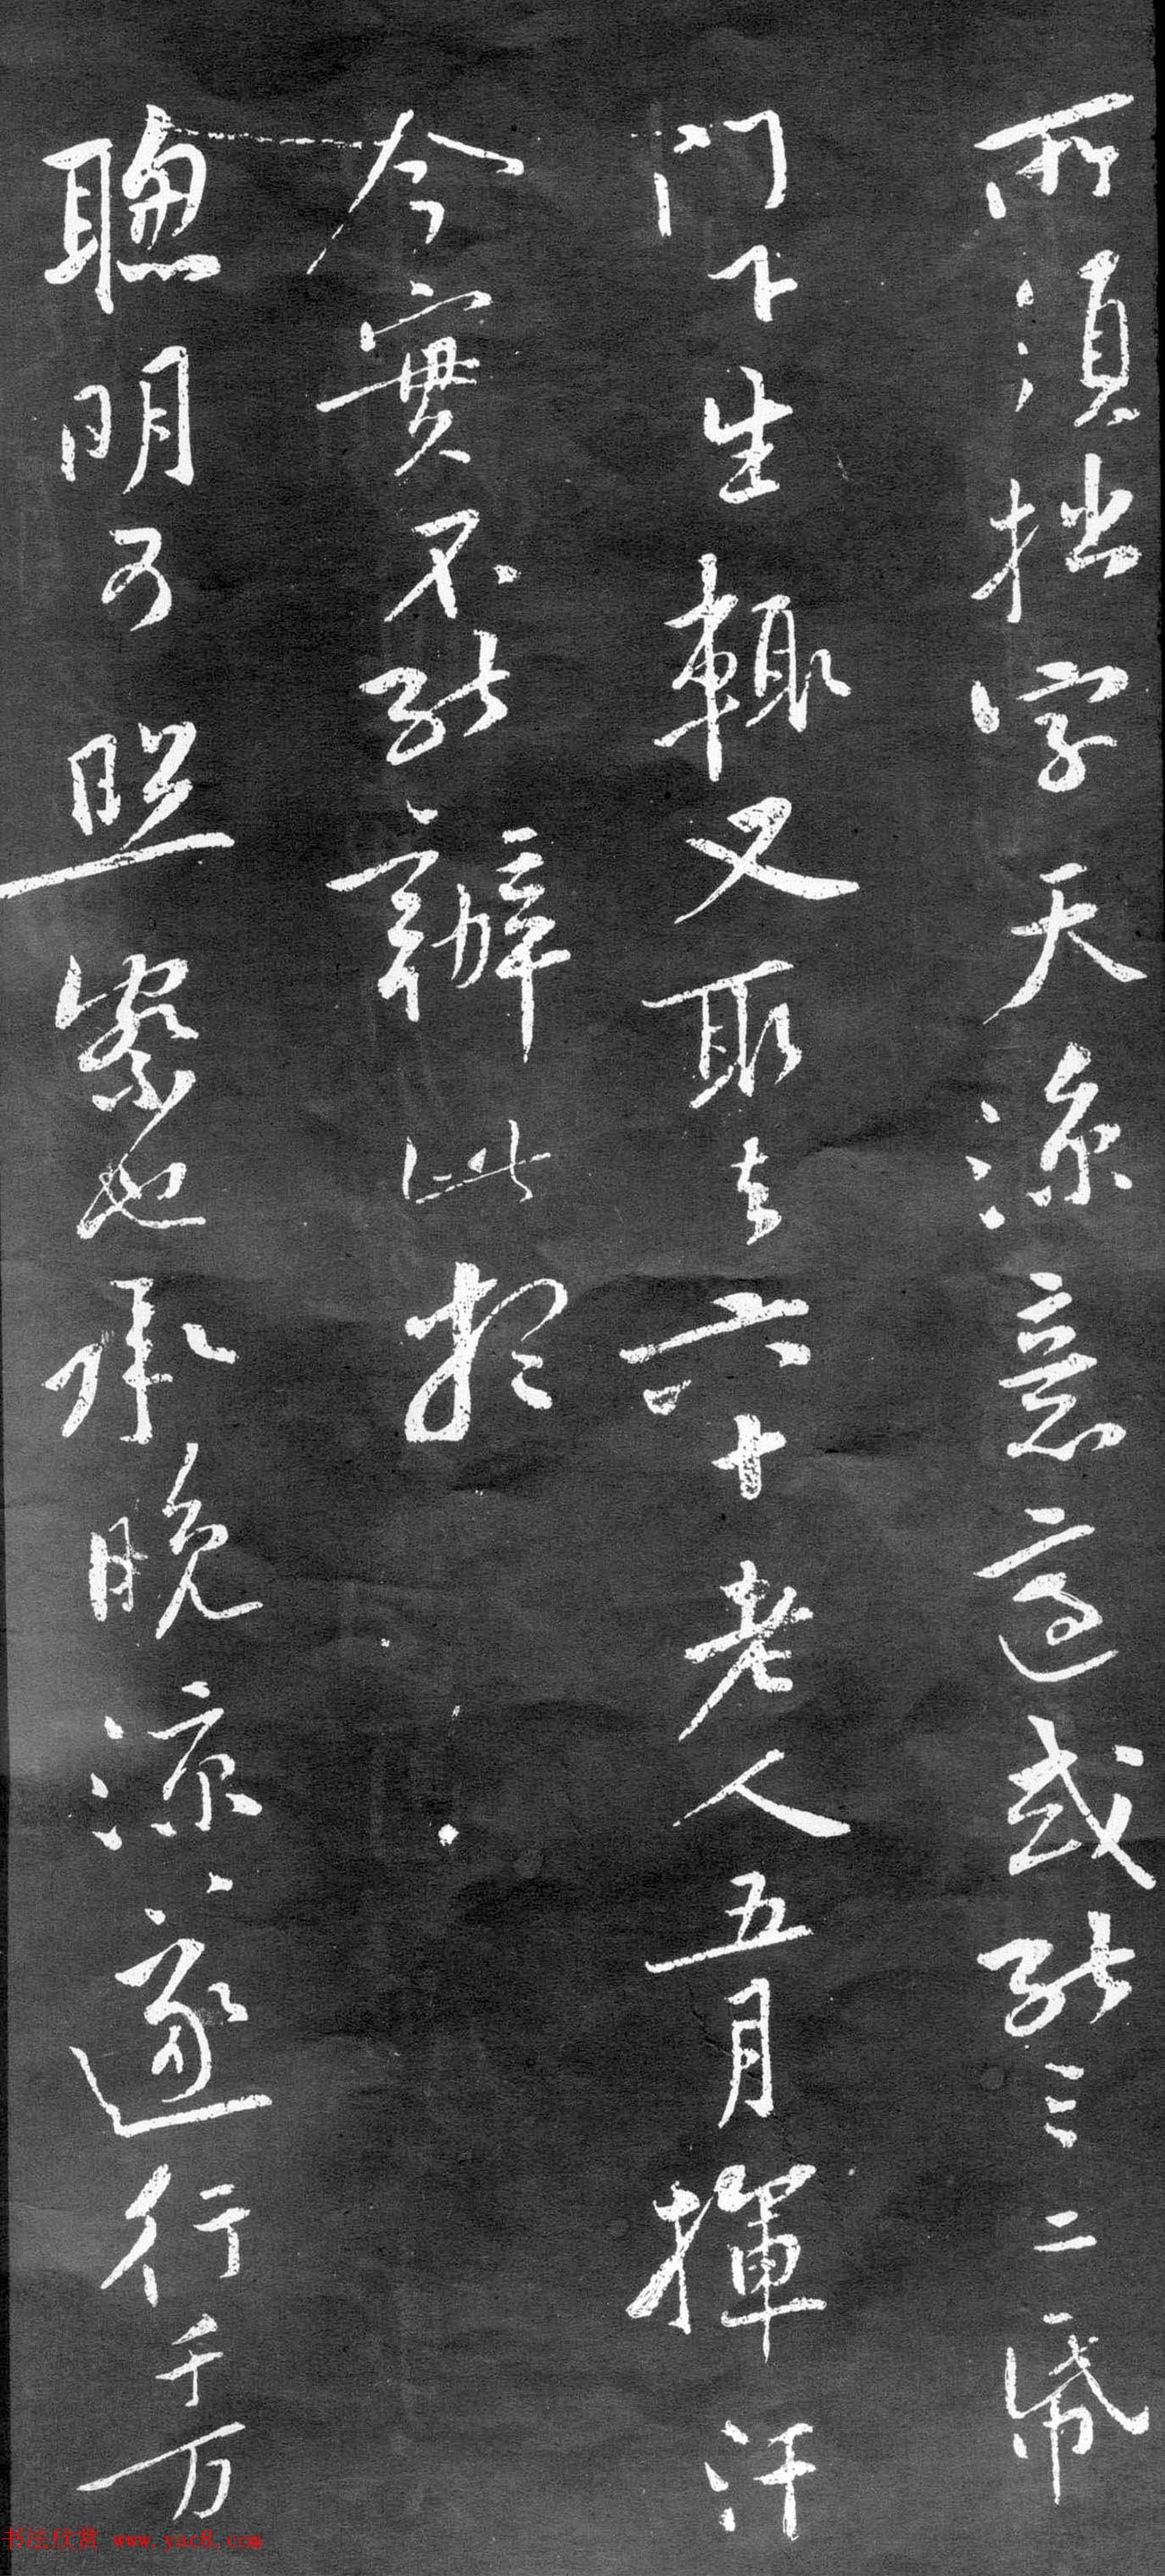 所須拙字天涼意適或能三二紙
門下生輒又取去六十老人五月揮汗
今實不能辦此想
聰明可照察也承晚涼遂行千万
书法欣赏 www.yac8.com